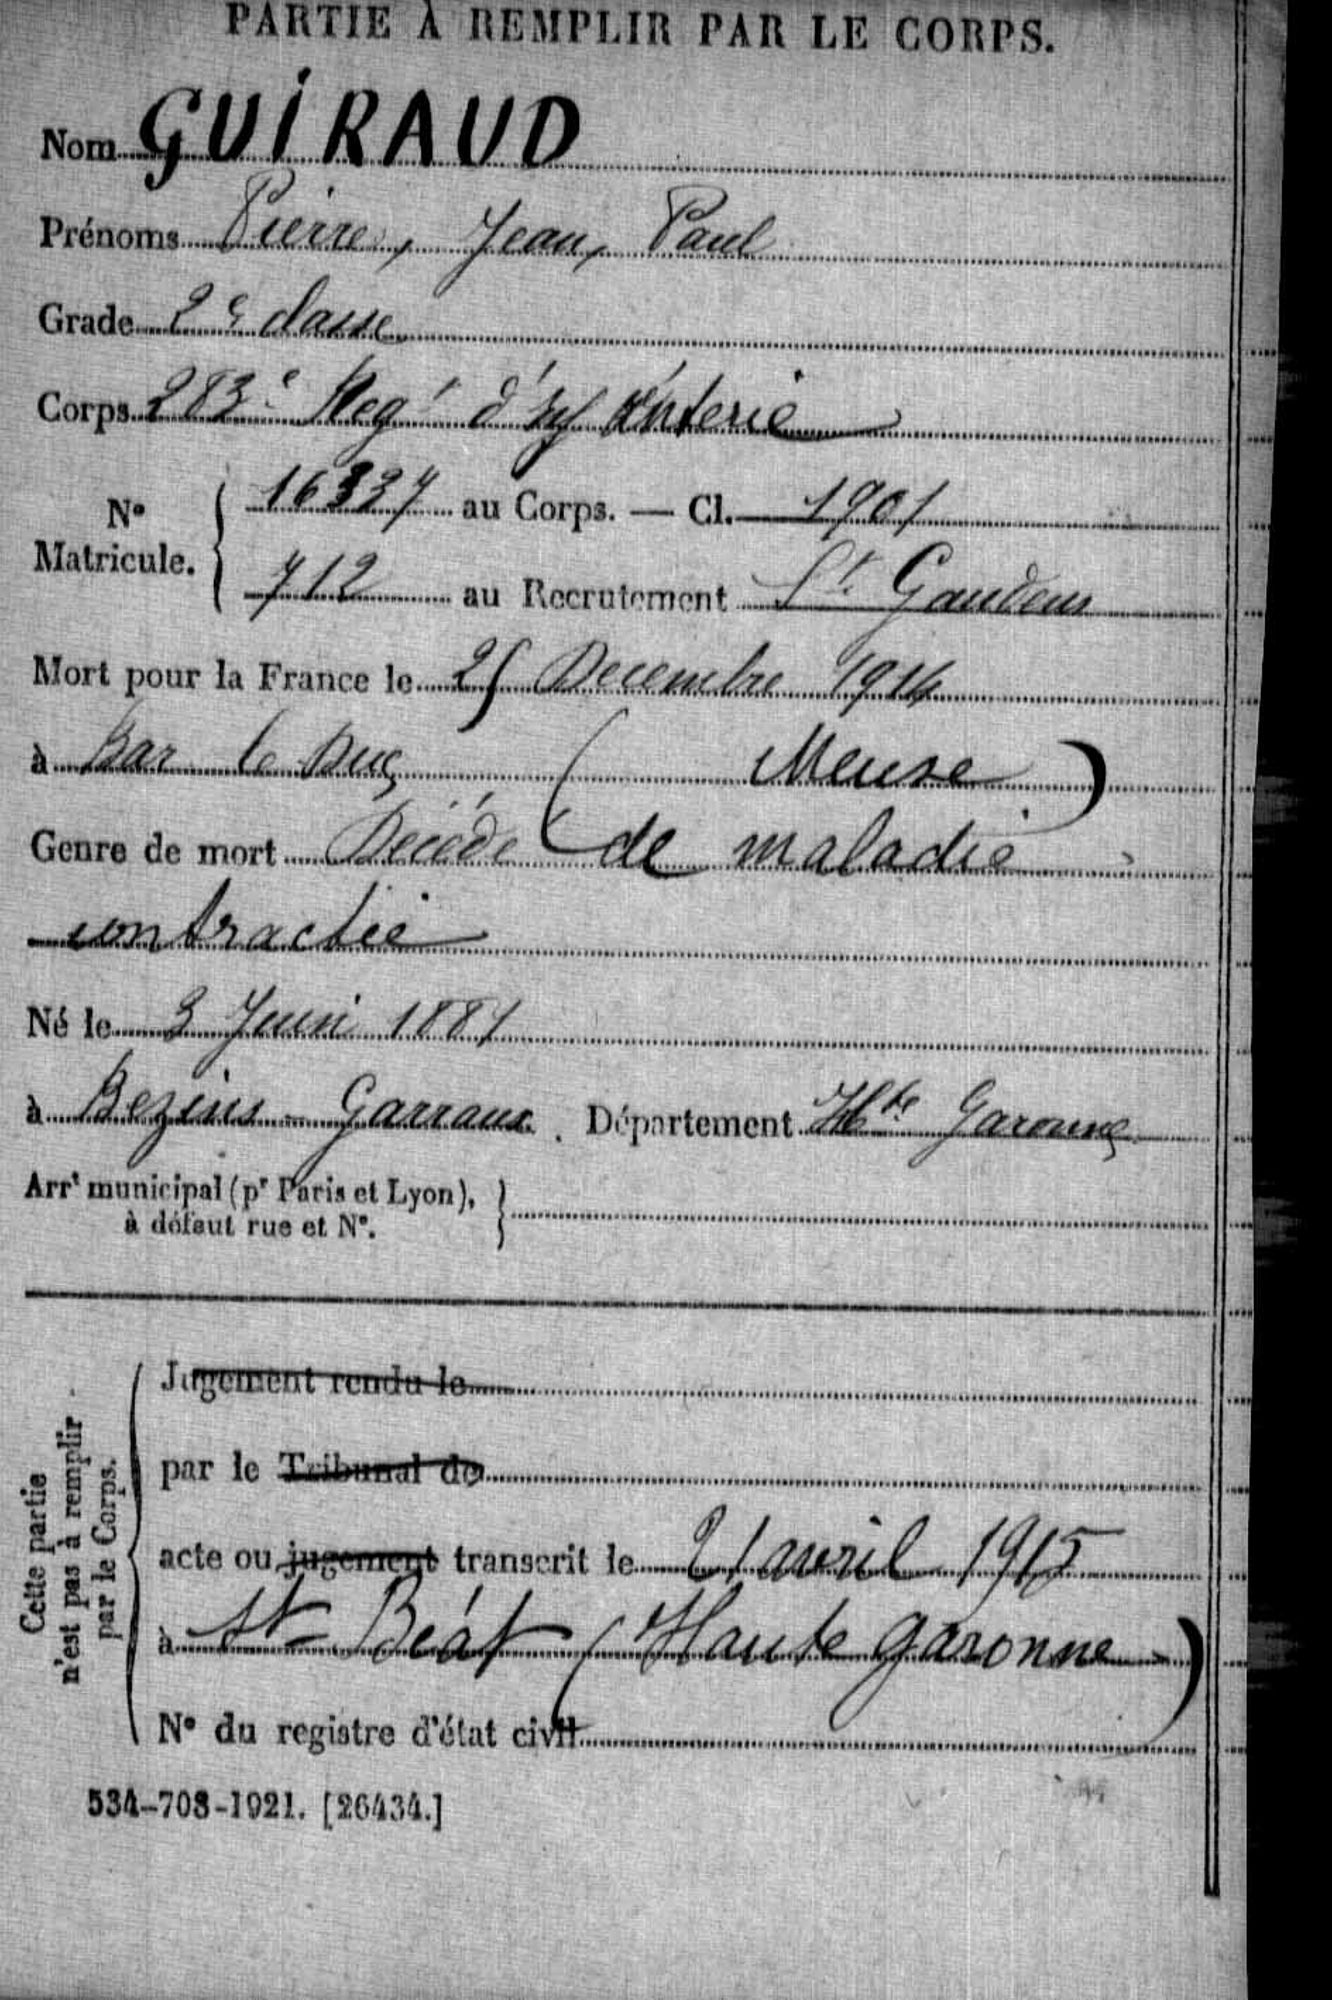 PARTIE À REMPLIR PAR LE CORPS.
Nom GUIRAUD
Prénoms Pierre, Jean, Paul
Grade 2e classe
Corps 283e Regt d'Infanterie
No Matricule. { 16337 au Corps. — Cl. 1901
712 au Recrutement St. Gaudens
Mort pour la France le 25 Decembre 1914
à Bar le Duc ( Meuse )
Genre de mort Décédé de maladie
contractée
Né le 3 Juin 1881
à Bezins - Garraux. Département Hte Garonne
Arrt municipal (pr Paris et Lyon),
à défaut rue et No. }
Cette partie
n'est pas à remplir
par le Corps.
Jugement rendu le
par le Tribunal de
acte ou jugement transcrit le 21 avril 1915
à St Béat (Haute garonne)
No du registre d'état civil
534-708-1921. [26434.]